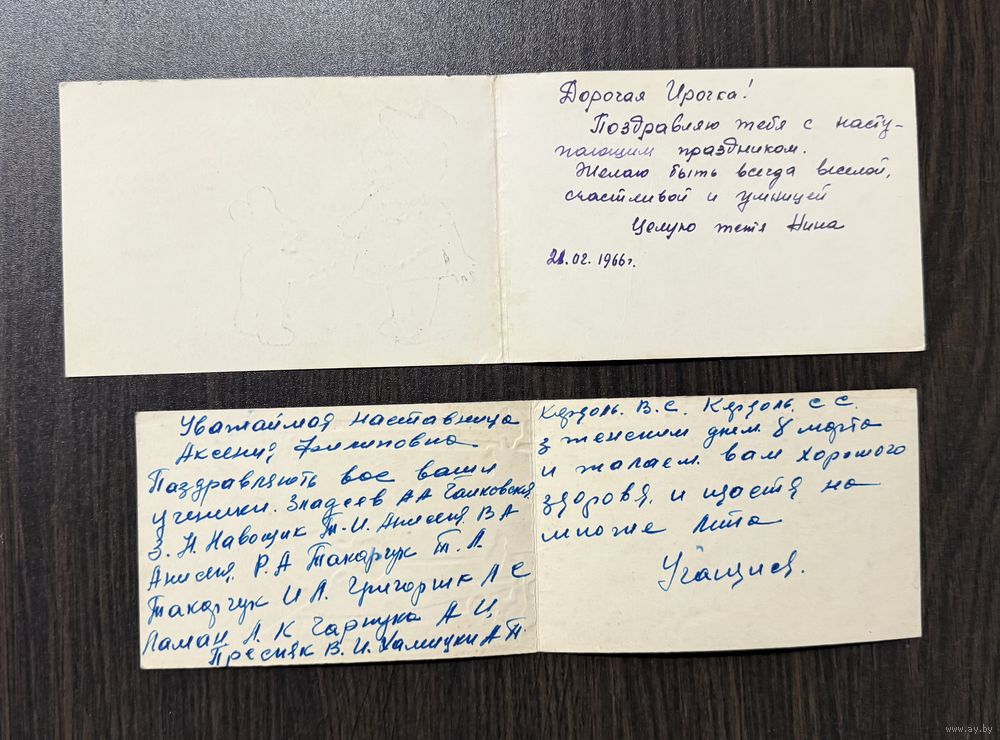 Дорогая Ирочка!
Поздравляю тебя с насту-
пающим праздником.
Желаю быть всегда веселой,
счастливой и умницей
Целую тетя Нина
21.02.1966г.
Уважаймоя наставница
Аксения Филиповна.
Паздравляють вас ваши
ученики. А А
З. Н. Навощик Т. И. В А
Р. А Такарчук Т. Л.
Такарчук И Л. Григорчик Л С
Ламан Л. К А И,
Пресняк В. И. А П.
В. С. С С.
з женским днем 8 марта
и жалаем вам хорошого
здоровя, и щастя на
многие лита
Учащися.
www.ay.by